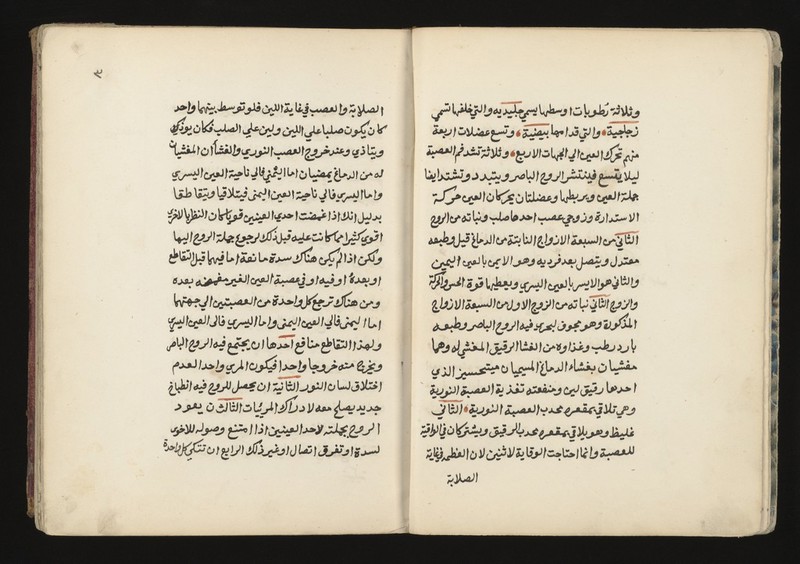 وثلاثة رطوبات اوسطها يسمي جليديه والتي خلفها تسمي
زجاجية والتي قدامها بيضية وتسع عضلات اربعة
منهم تحرك العين الي الجهات الاربع وثلاثة تشد فم العصبة
ليلا يتسع فينتشر الروح الباصر ويتبدد وتشد ايضا
جملة العين ويربطها وعضلتان يحركان العين حركة
الاستدارة وزوجي عصب احدها صلب ونباته من الزوج
الثاني من السبعة الازواج النابتة من الدماغ قيل وطبعه
معتدل ويتصل بعد فرديه وهو الايمن بالعين اليمين
والثاني هو الايسر بالعين اليسري ويعطيها قوة الحس والحركة
والزوج الثاني نباته من الزوج الاول من السبعة الازواج
المذكورة وهو مجوف ليجري فيه الروح الباصر وطبعه
بارد رطب وغذاوه من الغشا الرقيق المغشي له وهما
مغشيان بغشاء الدماغ المسميان مينيحسين الذي
احدها رقيق لين ومنفعته تغذية العصبة النورية
وهي تلاقي بمقعره محدب العصبة النورية الثاني
غليظ وهو يلاقي بمقعره محدب الرقيق ويشتركان في الواقية
للعصبة وانما احتاجت الوقاية لاثنين لان العظم في غاية
الصلابة
الصلابة والعصب في غاية اللين فلو توسط بينهما واحد
كان يكون صلبا علي اللين ولين علي الصلب فكان يوذيه
ويتاذي وعند خروج العصب النوري والغشاان المغشيان
له من الدماغ يمضيان اما اليمني فالي ناحية العين اليسري
واما اليسري فالي ناحية العين اليمني فيتلاقيا ويتقاطعا
بدليل انك اذا غمضت احدي العينين قويا كان النظر بالاخري
اقوي كثيرا مما كانت عليه قبل ذلك لرجوع جملة الروح اليها
ولكن اذا لم يكن هناك سدة مانعة اما فيهما قبل التقاطع
او بعدة او فيه او في عصبة العين الغير مغمضه بعده
ومن هناك ترجع كل واحدة من العصبتين الي جهتها
اما اليمني فالي العين اليمني واما اليسري فالي العين اليسري
ولهذا التقاطع منافع احدها ان يجتمع فيه الروح الباصر
ويخرج منه خروجا واحدا فيكون المري واحدا لعدم
اختلاق لسان النور الثانية ان يحصل للروح فيه انطباخ
جديد يصلح معه لادراك المرئيات الثالث ن يعود
الروح بجملته لاحد العينين اذا امتنع وصوله للاخري
لسدة او تفرق اتصال او غير ذلك الرابع ان تتكي كل واحدة